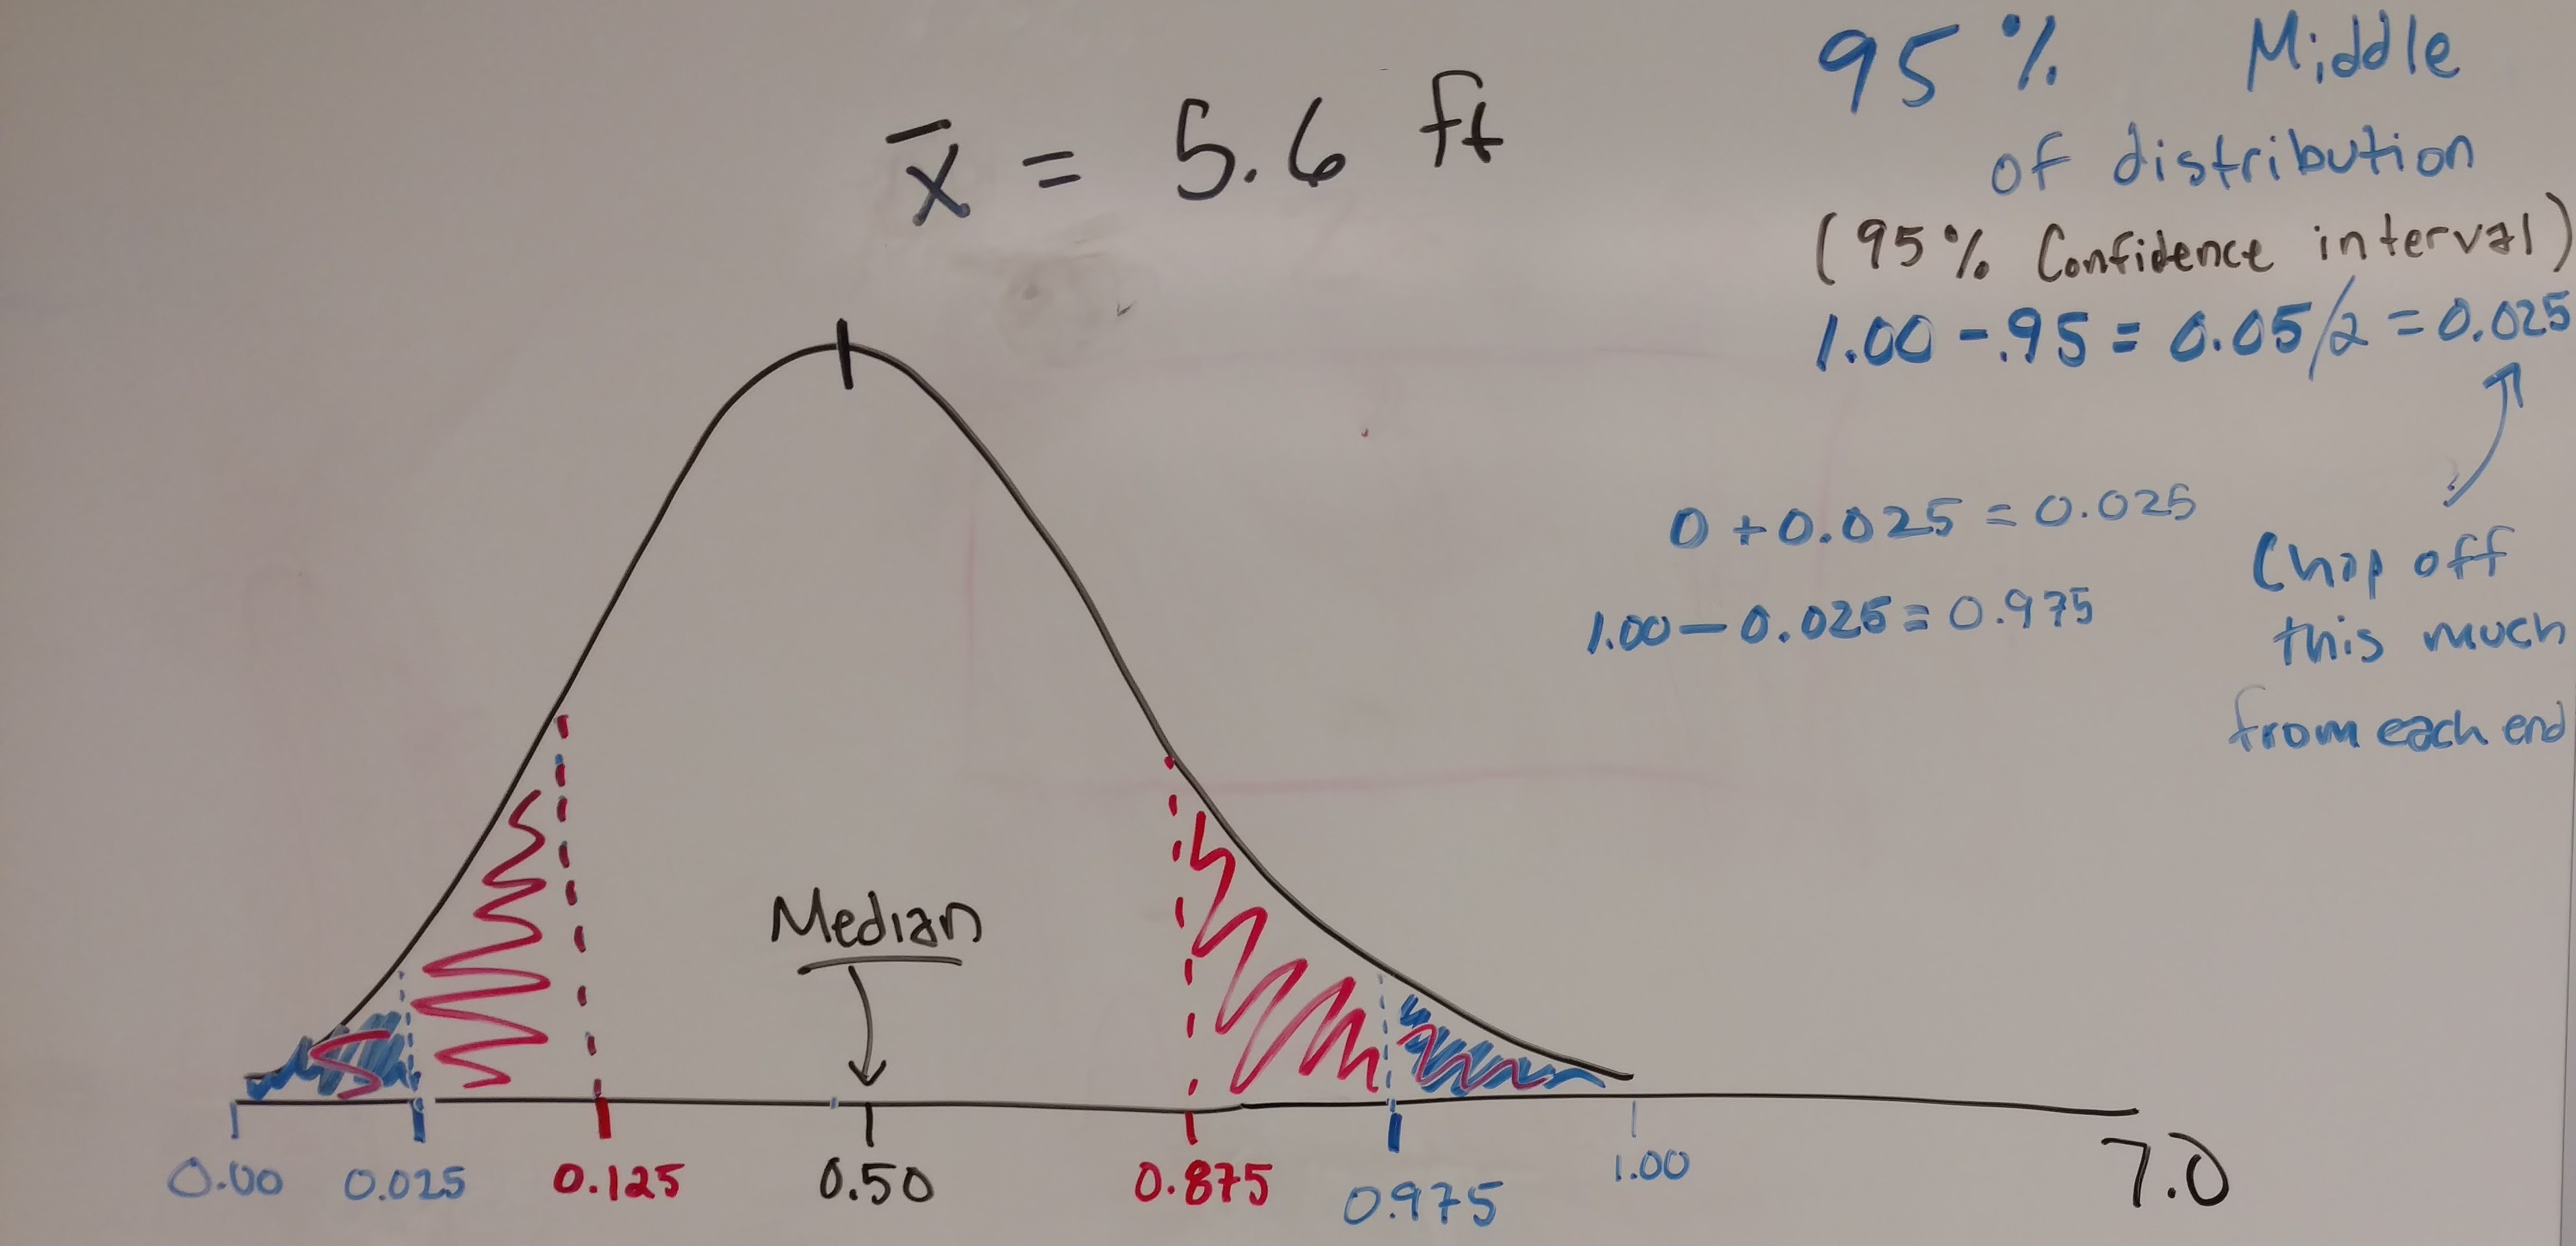 95% Middle
of distribution
(95% Confidence interval)
1.00 - .95 = 0.05/2 = 0.025
x̄ = 5.6 ft
0 + 0.025 = 0.025
1.00 - 0.025 = 0.975
Chop off
this much
from each end
Median
0.00 0.025 0.125 0.50 0.875 0.975 1.00 7.0